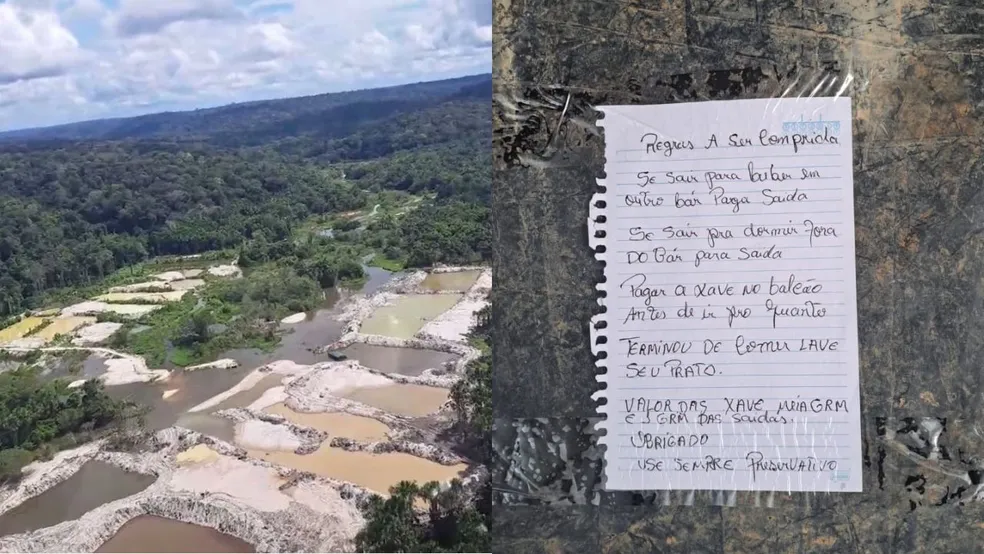 Regras A Ser Comprida
Se sair para beber em
outro bár Parga Saida
Se Sair pra dormir fora
DO bár para Saida
Pagar a xave no balcão
Antes de ir pro quanto
TERMINOU DE Comer LAVE
SEU PRATO.
VALOR DAS XAVE MEIA GRM
E 5 GRM DAS SAIDAS.
OBRIGADO
USE SEMPRE PRESERVATIVO